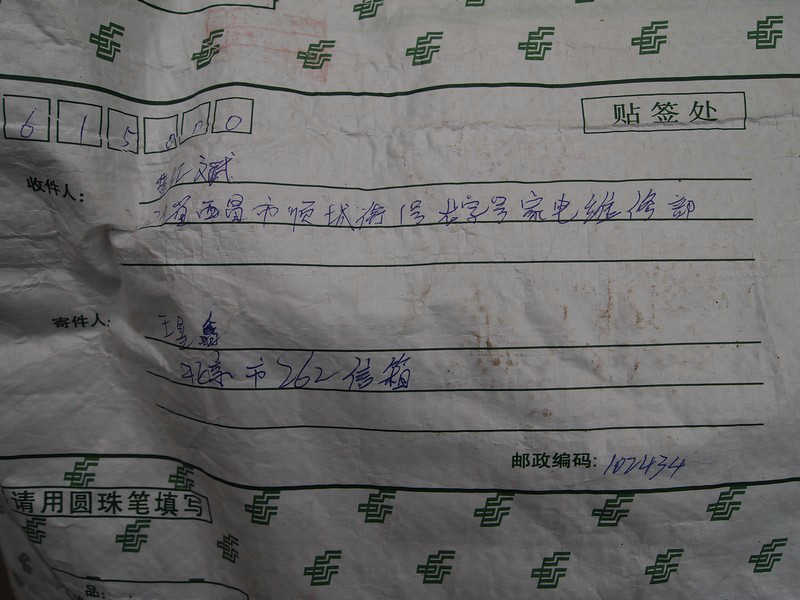 615000
贴签处
收件人:
省西昌市顺城街1号 家电维修部
寄件人:
北京市262信箱
邮政编码: 102434
请用圆珠笔填写
品: